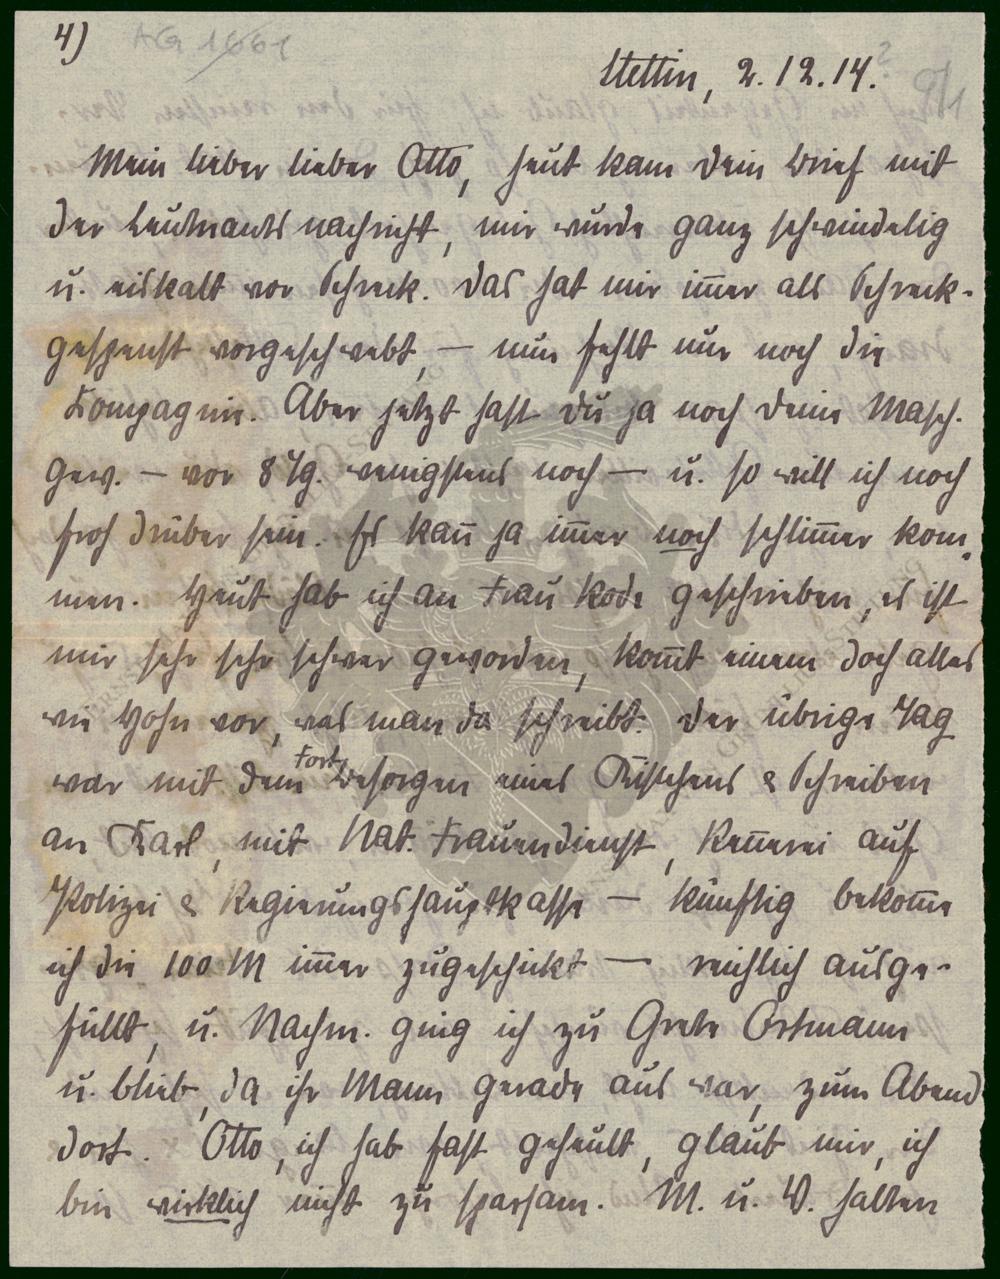 4)
AG 1661
Stettin, 2.12.14.?
9/1
Mein lieber lieber Otto, heut kam dein Brief mit
der Leutnantsnachricht, mir wurde ganz schwindelig
u. eiskalt vor Schreck. Das hat mir im̅er als Schreck-
gespenst vorgeschwebt, — nun fehlt nur noch die
Kompagnie. Aber jetzt hast du ja noch deine Masch.
Gew. — vor 8 Tg. wenigstens noch — u. so will ich noch
froh drüber sein. Es kan̅ ja im̅er noch schlim̅er kom-
men. Heut hab ich an Frau Rode geschrieben, es ist
mir sehr sehr schwer geworden, kom̅t einem doch alles
wie Hohn vor, was man da schreibt. Der übrige Tag
war mit dem Fortbesorgen eines Kistchens & Schreiben
an Karl, mit Nat. Frauendienst, Ren̅erei auf
Polizei & Regierungshauptkasse — künftig bekom̅e
ich die 100 M im̅er zugeschickt — reichlich ausge-
füllt, u. Nachm. ging ich zu Grete Ostmann
u. blieb, da ihr Mann gerade aus war, zum Abend
dort. Otto, ich hab fast geheult, glaub mir, ich
bin wirklich nicht zu sparsam. M. u. V. halten